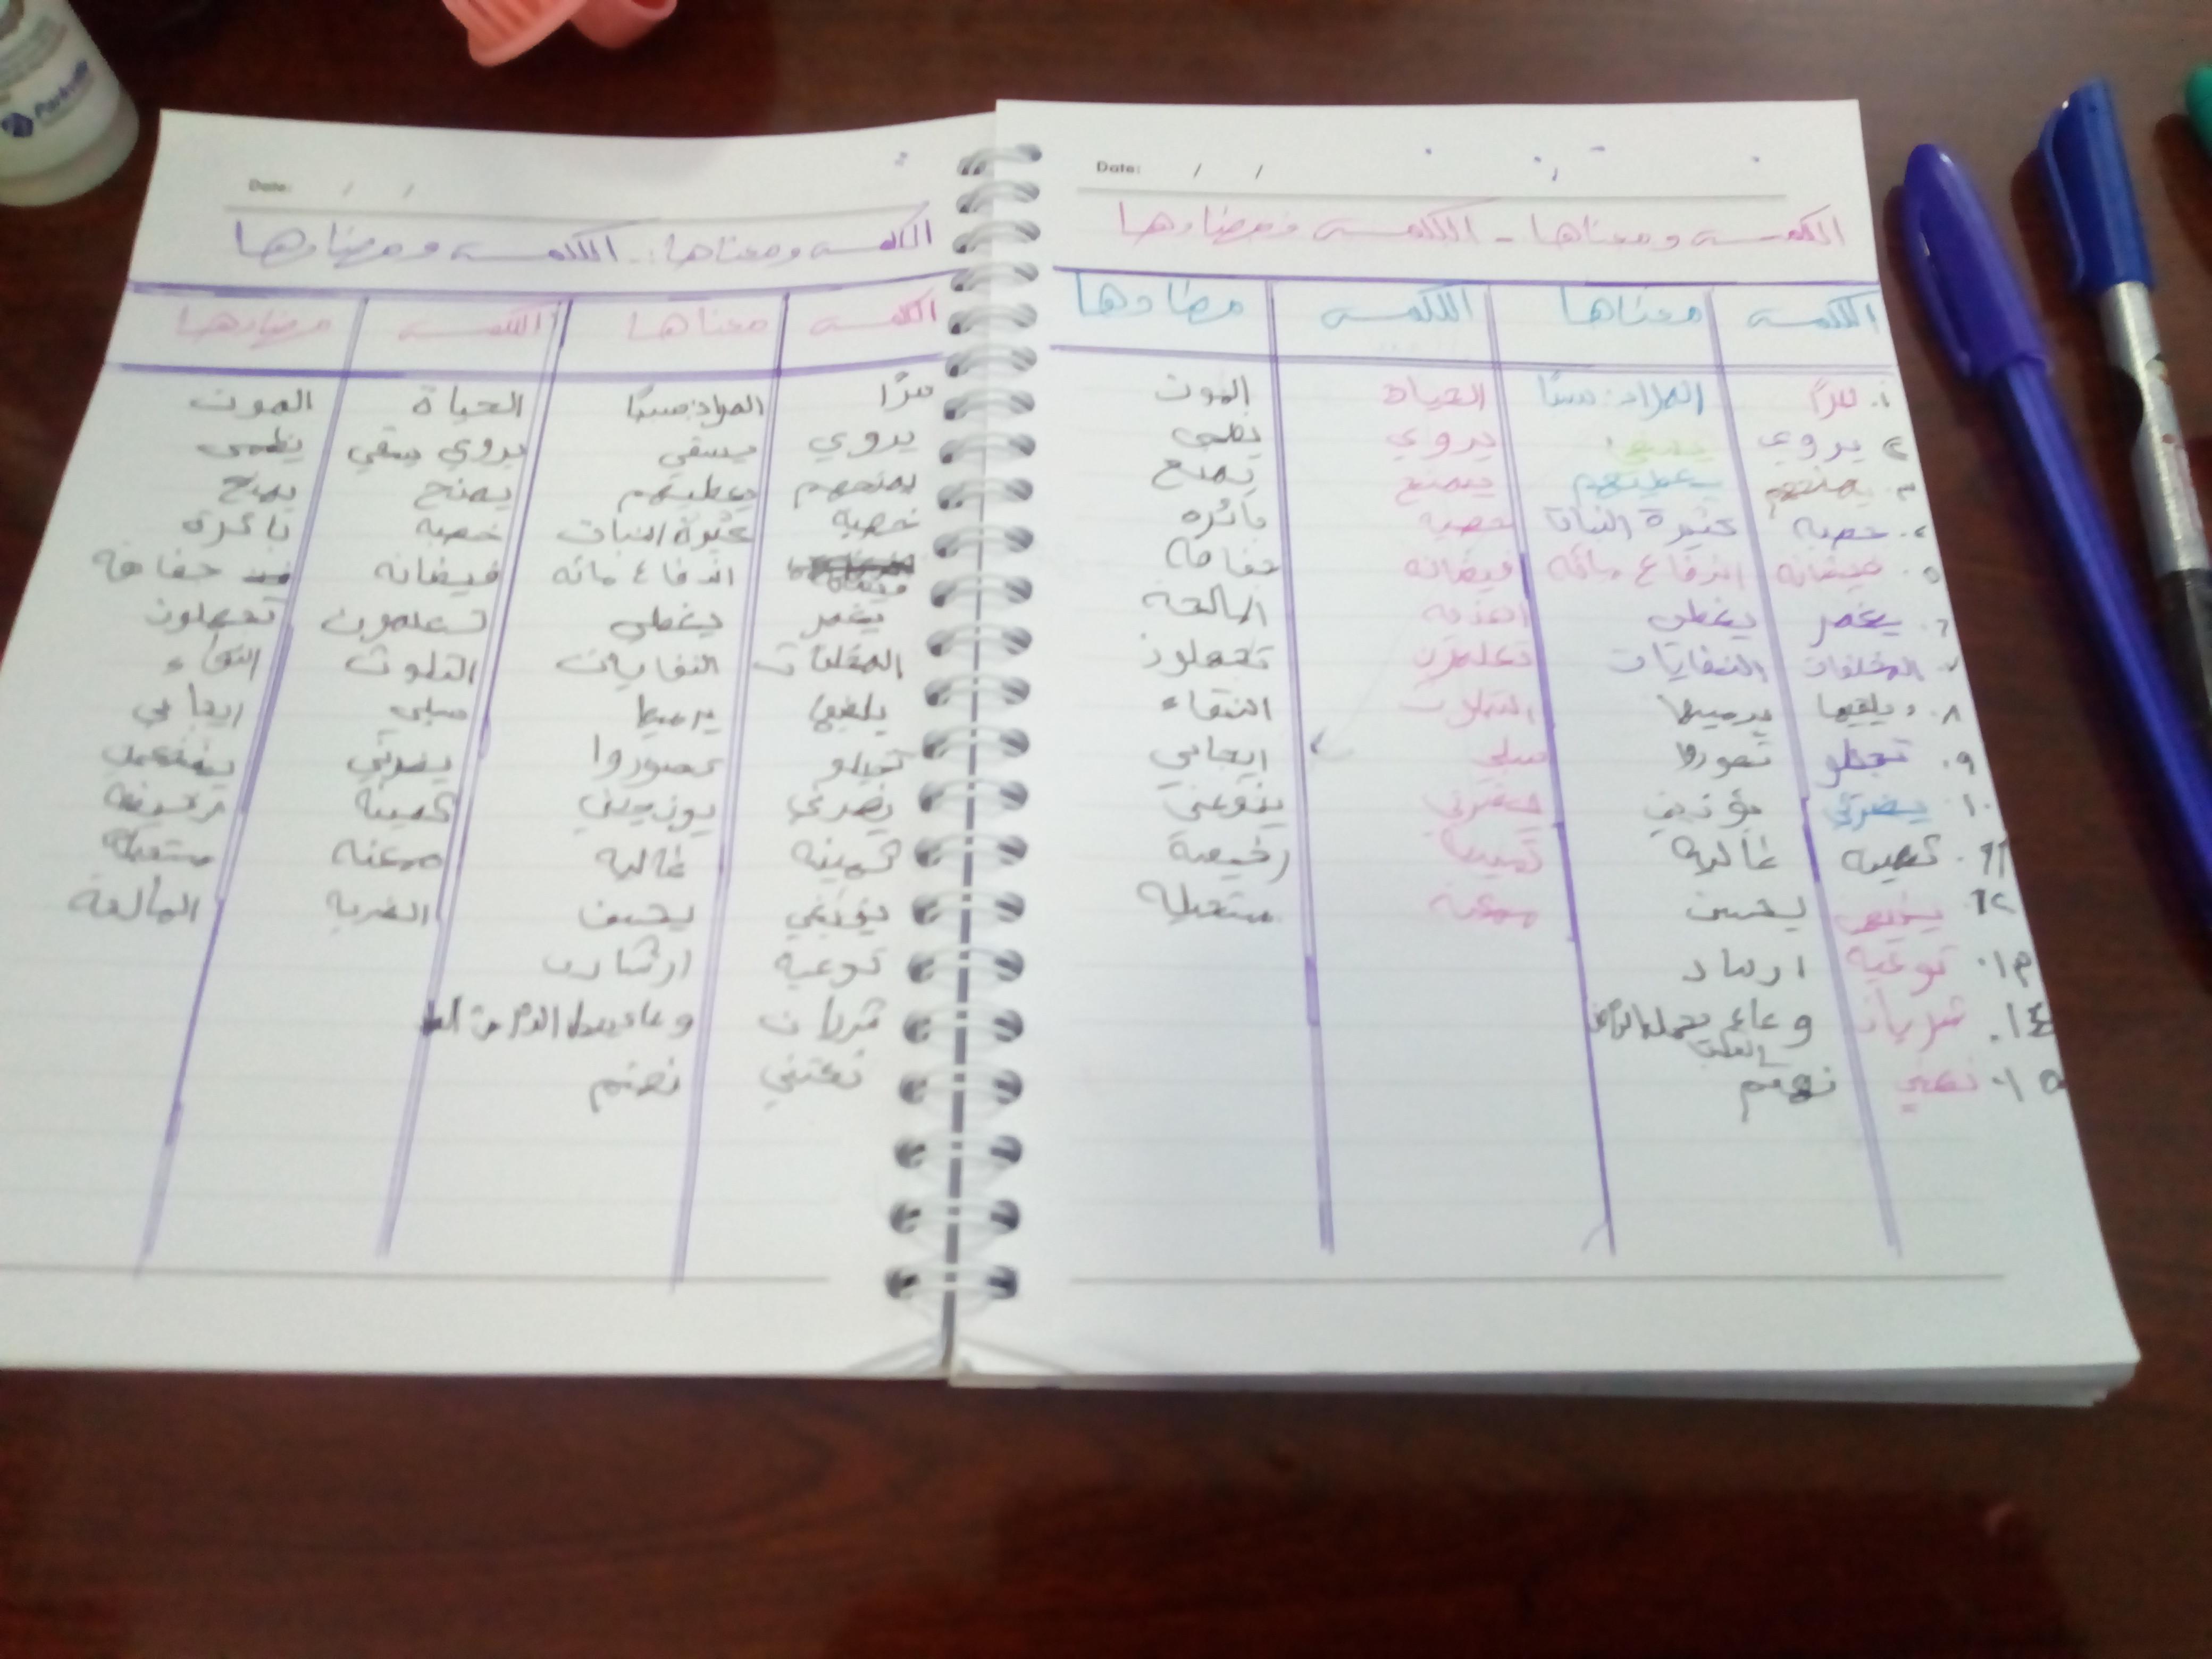 Parkville
Date: / /
الكلمة ومعناها - الكلمة ومضادها
الكلمة معناها الكلمة مضادها
١. سرًا المراد: سببًا الحياة الموت
٢ يروي يروي يظمى
٣. يمنحهم يعطيهم يمنح يمنع
٤. خصبة كثيرة النبات خصبة بائرة
٥. فيضانه اندفاع مائه فيضانه جفافه
٦. يغمر يغطي العذبة المالحة
٧. المخلفات النفايات تعلمون تجهلون
٨. ويلقيها يرميها التلوث النقاء
٩. تخيلو تصوروا سلبي ايجابي
١٠. يضرني يؤذيني يضرني ينفعني
١١. ثمينة غالية ثمينة رخيصة
١٢. يحسن ممكنة مستحيلة
١٣. توعية ارشاد
١٤. شريان وعاء يحمل الدم من القلب
١٥. نعتني نهتم
Date: / /
الكلمة ومعناها: - الكلمة ومضادها
الكلمة معناها الكلمة مضادها
سرًا المراد: سببًا الحياة الموت
يروي يسقي يروي يسقي يظمى
يمنحهم يعطيهم يمنح يمنع
خصبة كثيرة النبات خصبة بائرة
فيضانه اندفاع مائه فيضانه جفافه
يغمر يغطي تعلمون تجهلون
المخلفات النفايات التلوث النقاء
يلقيها يرميها سلبي ايجابي
تخيلو تصوروا يضرني
يضرني يوذيني ثمينة رخيصة
ثمينة غالية ممكنة مستحيلة
يحسن المالحة
توعية ارشاد
شريان وعاء الدم من
نعتني نهتم